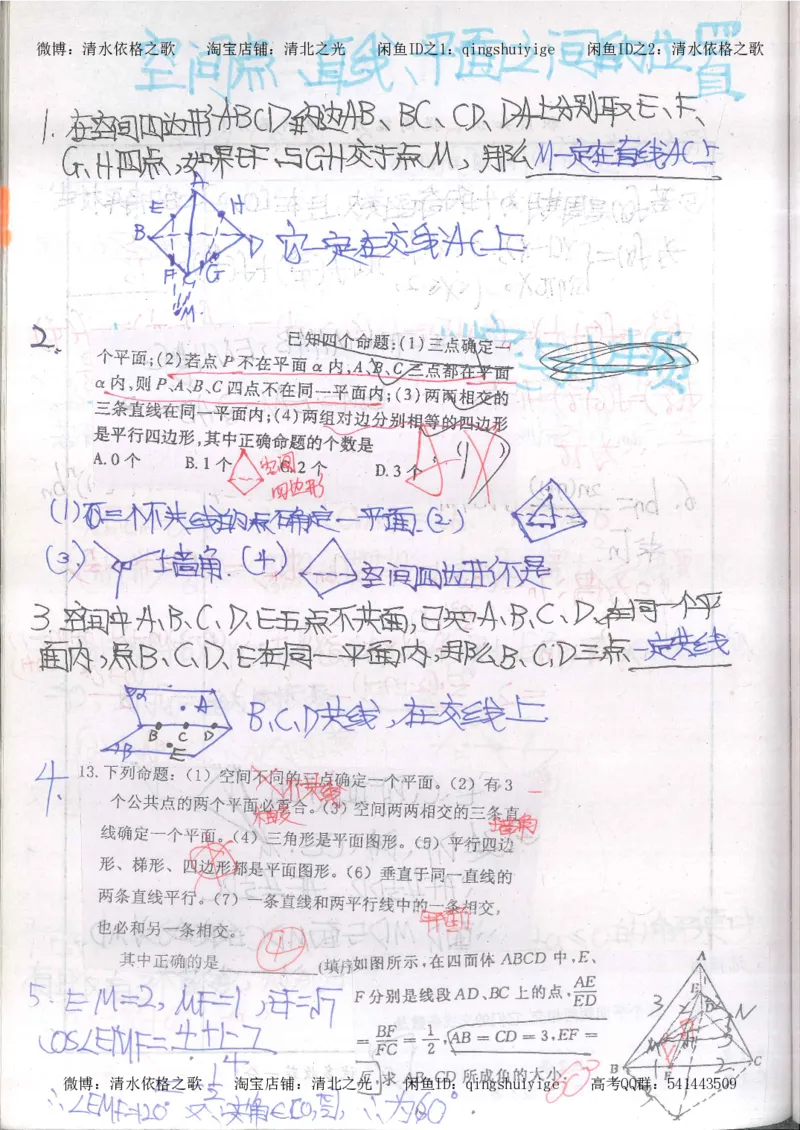 微博：清水依格之歌 淘宝店铺：清北之光 闲鱼ID之1：qingshuiyige 闲鱼ID之2：清水依格之歌
空间点、直线、平面之间的位置
1. 在空间四边形ABCD的边AB、BC、CD、DA上分别取E、F、
G、H四点，如果EF与GH交于点M，那么M一定在直线AC上
A
E H
B D
F C G
M
它一定在交线AC上
2.
已知四个命题：(1)三点确定一
个平面；(2)若点P不在平面α内，A、B、C三点都在平面
α内，则P、A、B、C四点不在同一平面内；(3)两两相交的
三条直线在同一平面内；(4)两组对边分别相等的四边形
是平行四边形，其中正确命题的个数是
A.0个 B.1个 C.2个 D.3个
(1)
空间
四边形
(1)三个不共线的点确定一平面.(2)
(3) 墙角 (4) 空间四边形不是
3.空间中A、B、C、D、E五点不共面，已知A、B、C、D、在同一个平
面内，点B、C、D、E在同一平面内，那么B、C、D三点一定共线
α A
B C D
β E
B、C、D共线，在交线上
4.
13.下列命题：（1）空间不同的三点确定一个平面。（2）有3
不共线
个公共点的两个平面必重合。（3）空间两两相交的三条直
相交
墙角
线确定一个平面。（4）三角形是平面图形。（5）平行四边
形、梯形、四边形都是平面图形。（6）垂直于同一直线的
两条直线平行。（7）一条直线和两平行线中的一条相交，
也必和另一条相交。
④
其中正确的是 (填序
如图所示，在四面体ABCD中，E、
F分别是线段AD、BC上的点，AE/ED
=BF/FC=1/2，AB=CD=3，EF=
√7，求AB、CD所成角的大小.
A
E
D
N
M
B
C
3 2
1 2
5. EM=2，MF=1，EF=√7
cos∠EMF=4+1-7
4
∴∠EMF=120° 又∵夹角∈[0, ∴为60°
60°
微博：清水依格之歌 淘宝店铺：清北之光 闲鱼ID之1：qingshuiyige 高考QQ群：541443509